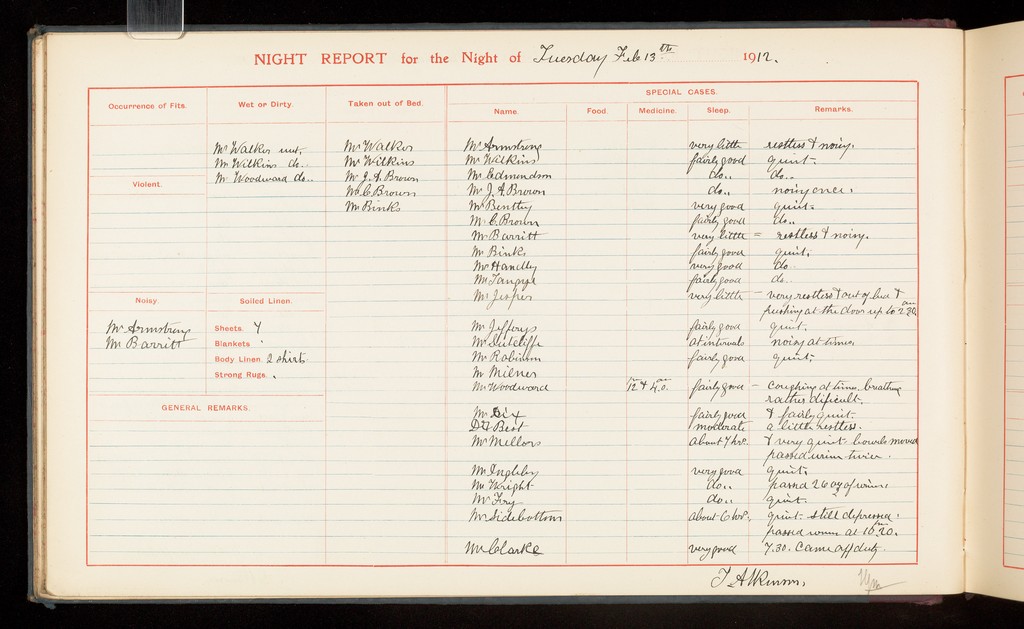 NIGHT REPORT for the Night of Tuesday Feb 13th 1912.
SPECIAL CASES.
Occurrence of Fits. Wet or Dirty. Taken out of Bed. Name. Food. Medicine. Sleep. Remarks.
Mr Walker wet. Mr Walker Mr Armstrong very little restless & noisy.
Mr Wilkins do.. Mr Wilkins Mr Wilkins fairly good quiet.
Mr Woodward do.. Mr J. A. Brown Mr Edmundson do.. do..
Violent.
Mr C. Brown Mr J. A. Brown do.. noisy once.
Mr Binks Mr Bentley very good quiet.
Mr C. Brown fairly good do..
Mr Barritt very little = restless & noisy.
Mr Binks fairly good quiet.
Mr Handley very good do..
Mr Tangye fairly good do..
Noisy. Soiled Linen. Mr Jesper very little - very restless & out of bed &
pushing at the door up to 2.30 am
Mr Armstrong Sheets. 4 Mr Jefferys fairly good quiet.
Mr Barritt Blankets Mr Sutcliffe at intervals noisy at times
Body Linen 2 shirts. Mr Robinson fairly good quiet.
Strong Rugs. Mr Milner
Mr Woodward 12 & 4.0. am fairly good - coughing at times. breathing
rather dificult.
GENERAL REMARKS. Mr Dix fairly good & fairly quiet.
Dr Best moderate a little restless.
Mr Mellors about 7 hrs. & very quiet bowels moved
passed urine twice.
Mr Ingleby very good quiet.
Mr Wright do.. passed 26 oz of urine.
Mr Fry do.. quiet.
Mr Sidebottom about 6 hrs, quiet still depressed.
passed urine at 10.20. pm
Mr Clarke very good 7.30. Came off duty.
T Atkinson.